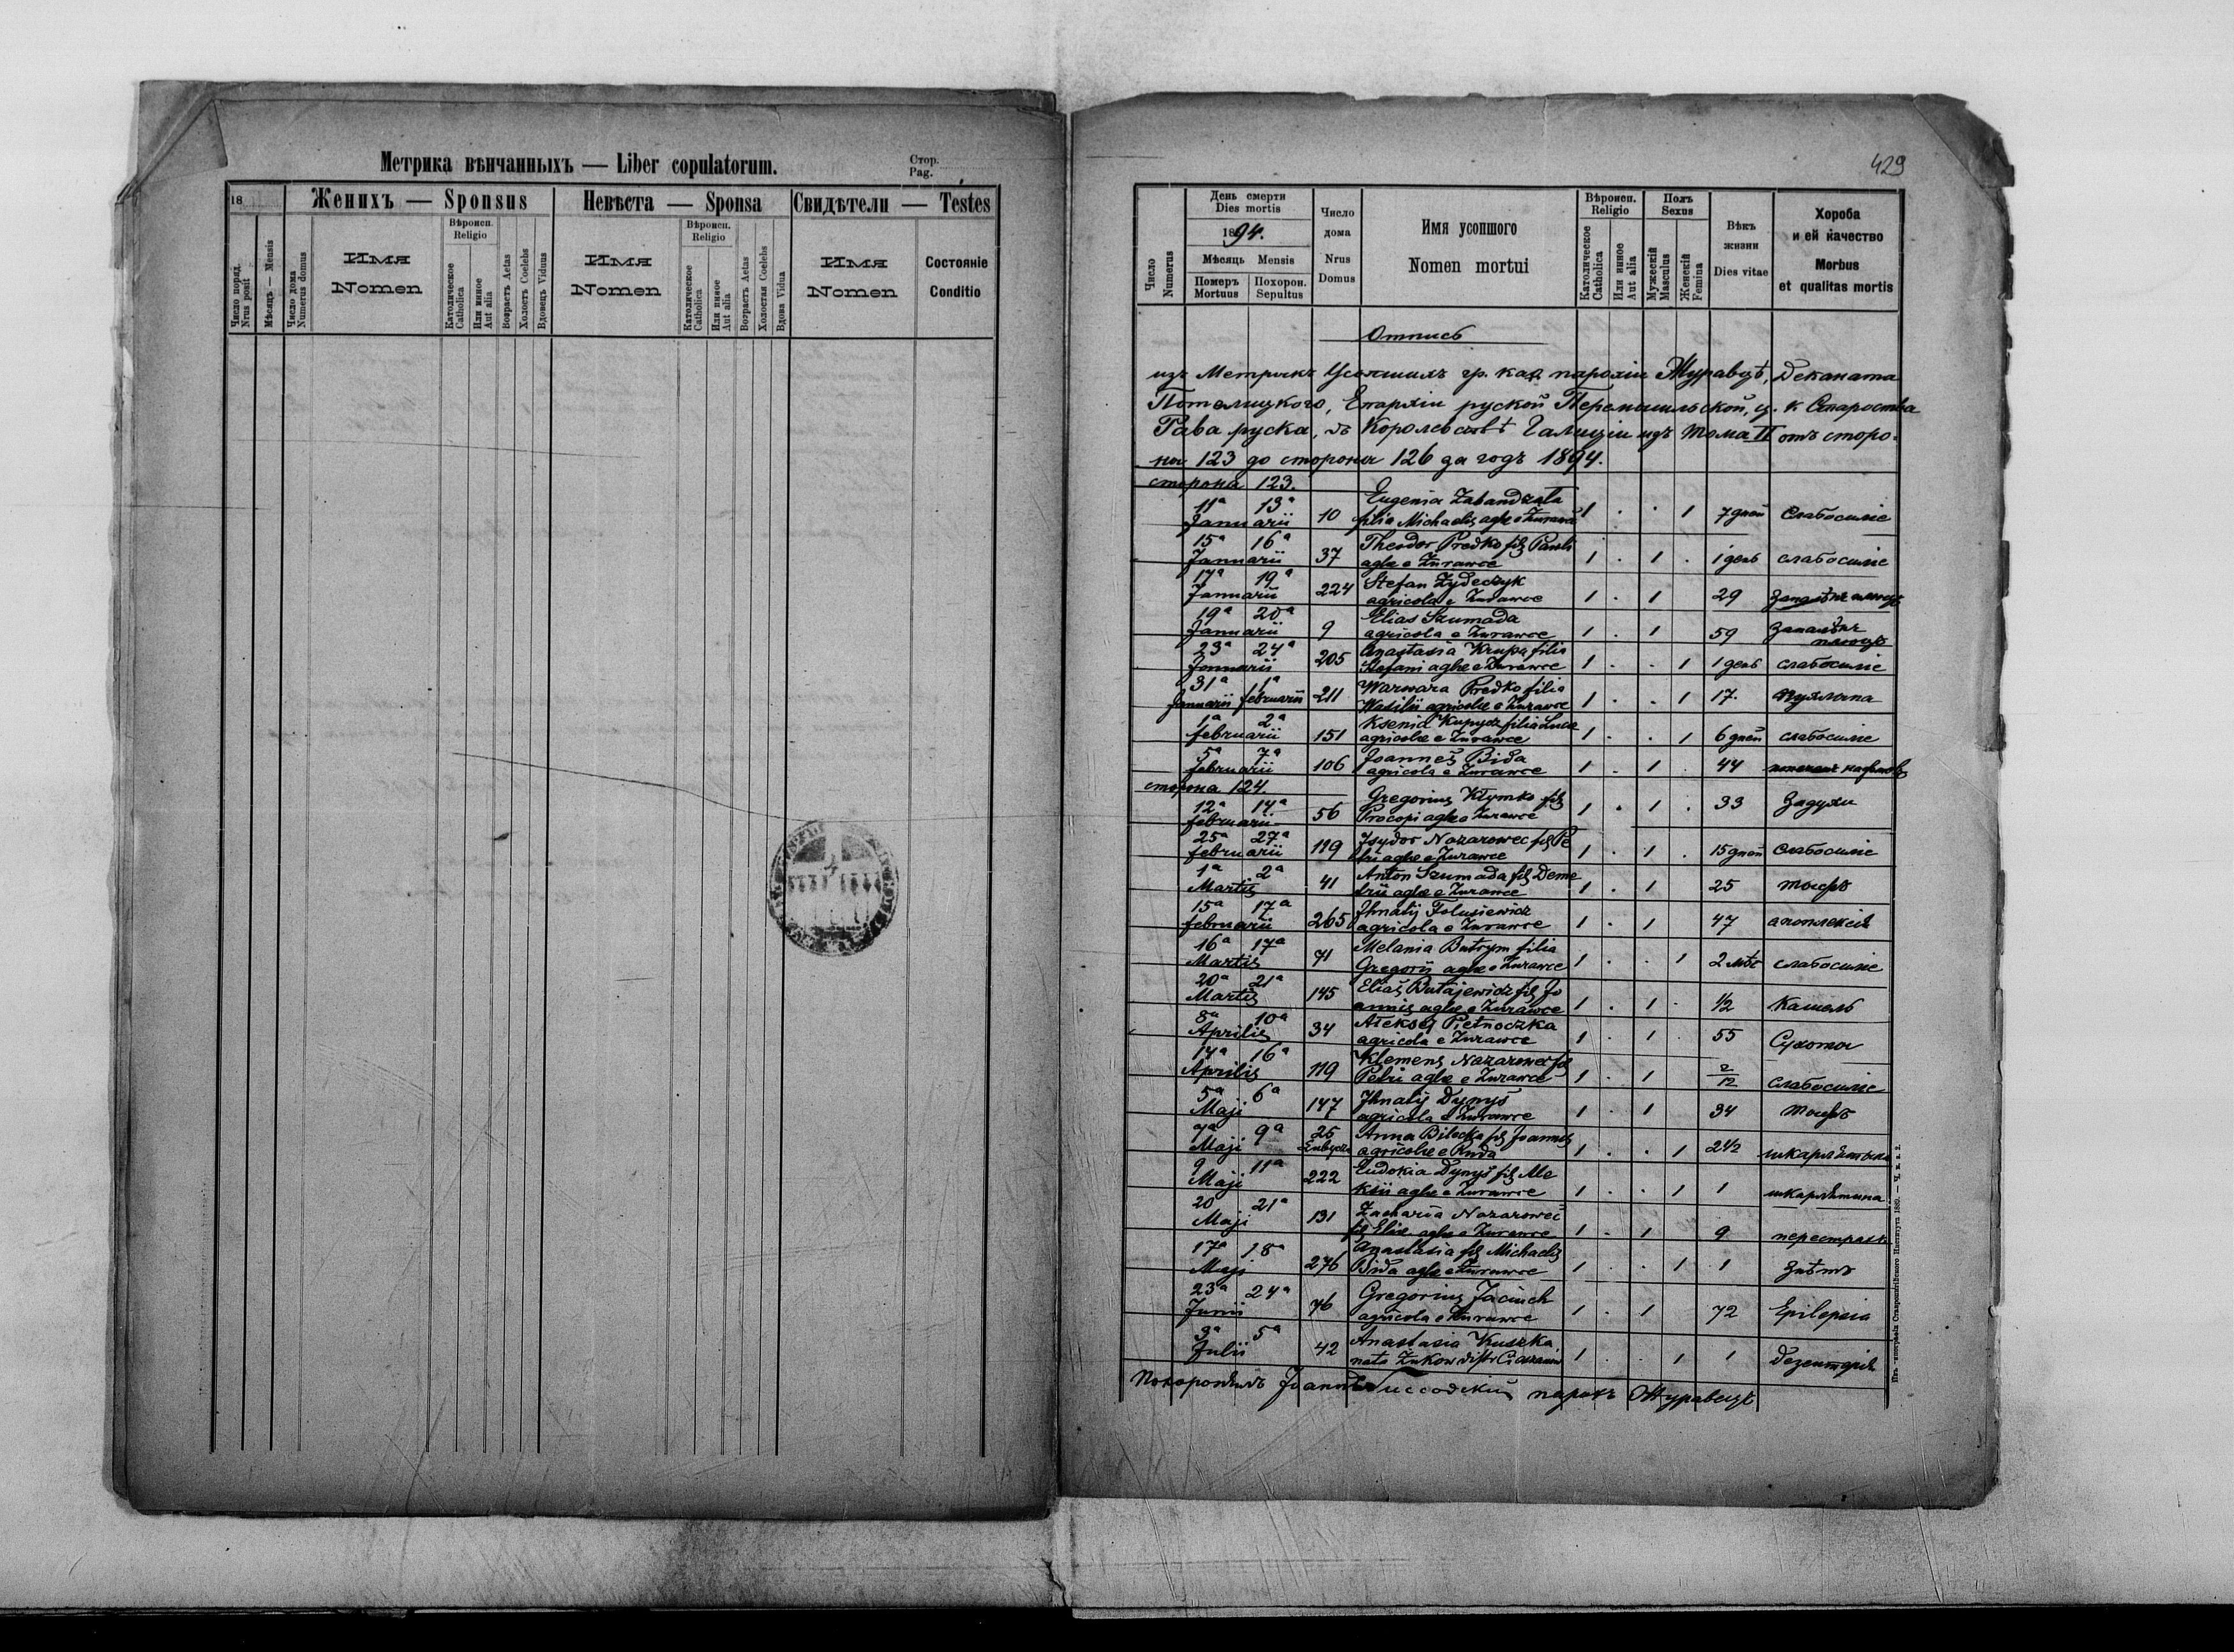 Метрика вѣнчанныхъ — Liber copulatorum.
Стор.
Pag.
18
Женихъ — Sponsus
Невѣста — Sponsa
Свидѣтели — Testes
Число поряд.
Nrus posit
Мѣсяцъ — Mensis
Число дома
Numerus domus
Имя
Nomen
Вѣроисп.
Religio
Католическое
Catholica
Или иное
Aut alia
Возрастъ Aetas
Холостъ Coelebs
Вдовецъ Viduus
Имя
Nomen
Вѣроисп.
Religio
Католическое
Catholica
Или иное
Aut alia
Возрастъ Aetas
Холостая Coelebs
Вдова Vidua
Имя
Nomen
Состояніе
Conditio
429
Число
Numerus
День смерти
Dies mortis
1894.
Мѣсяць Mensis
Померъ
Mortuus
Похорон.
Sepultus
Число
дома
Nrus
Domus
Имя усопшого
Nomen mortui
Вѣроисп.
Religio
Католическое
Catholica
Или иное
Aut alia
Полъ
Sexus
Мужескій
Masculus
Женскій
Femina
Вѣкъ
жизни
Dies vitae
Хороба
и ей качество
Morbus
et qualitas mortis
Отпись
изъ Метрикъ Усопшихъ гр. кат. парохіи Журавцѣ, Деканата
Потелицкого, Епархіи руской Перемышльской, ц. к. Староства
Рава руска, въ Королевствѣ Галиціи изъ Тома II отъ сторо-
ны 123 до стороны 126 за годъ 1894.
сторона 123.
11ª 13ª Eugenia
Januarii 10 filia Michaelis aglae e Żurawce 1 . . 1 7 дней слабосиліе
15ª 16ª Theodor Predko fils Pauli
Januarii 37 aglae e Żurawce 1 . 1 . 1 день слабосиліе
17ª 19ª Stefan Żydeczyk
Januarii 224 agricola e Żurawce 1 . 1 29
19ª 20ª Elias Szumada
Januarii 9 agricola e Żurawce 1 . 1 59
23ª 24ª Anastasia Krupa filia
Januarii 205 Stefani aglae e Żurawce 1 . . 1 1 день слабосиліе
31ª 1ª Warwara Predko filia
Januarii februarii 211 Wasilii agricolae e Żurawce 1 . . 1 17.
1ª 2ª Ksenia Kupycz filia Lucae
februarii 151 agricolae e Żurawce 1 . . 1 6 дней слабосиліе
5ª 7ª Joannes Bida
februarii 106 agricola e Żurawce 1 . 1 . 44
сторона 124.
12ª 14ª Gregorius Kłymko fils
februarii 56 Procopi aglae e Żurawce 1 . 1 . 33 Задухи
25ª 27ª Isydor Nazarowec fils Pe
februarii 119 tri aglae e Żurawce 1 . 1 . 15 дней слабосиліе
1ª 2ª Anton Szumada fils Deme
Martis 41 trii aglae e Żurawce 1 . 1 25 тифъ
15ª 17ª Ihnatij
februarii 265 agricola e Żurawce 1 . 1 47 апоплексія
16ª 17ª Melania Butrym filia
Martis 71 Gregorii aglae e Żurawce 1 . . 1 2 слабосиліе
20ª 21ª Elias Butajewicz fils Jo
Martis 145 annis aglae e Żurawce 1 . 1 . 1/2 кашель
8ª 10ª Aleksej Pietnoczka
Aprilis 34 agricola e Żurawce 1 . 1 . 55 Сухоты
14ª 16ª Klemens Nazarowec fils
Aprilis 119 Petri aglae e Żurawce 1 . 1 2/12 слабосиліе
5ª 6ª Ihnatij Dynys
Maji 147 agricola e Żurawce 1 . 1 34 тифъ
7ª 9ª 25 Anna Bilecka fils Joannis
Maji agricolae e Ruda 1 . . 1 2 1/2 шкарлятына
9 11ª Eudokia Dynys fils Ale
Maji 222 ksii aglae e Żurawce 1 . . 1 1 шкарлятына
20 21ª Zacharia Nazarowec
Maji 131 fils Eliae aglae e Żurawce 1 . 1 9 перестрахъ
17ª 18ª Anastasia fils Michaelis
Maji 276 Bida aglae e Żurawce 1 . . 1 1
23ª 24ª Gregorius Jacinch
Junii 76 agricola e Żurawce 1 . 1 72 Epilepsia
3ª 5ª Anastasia Kuszka
Julii 42 nata Żukow distr. Cieszanów 1 . . 1 1 Дезентерія
Похоронилъ Joannъ парохъ Журавецѣ
Изъ типографіи Ставропигійского Института 1889. — Ч. в. з. 2.